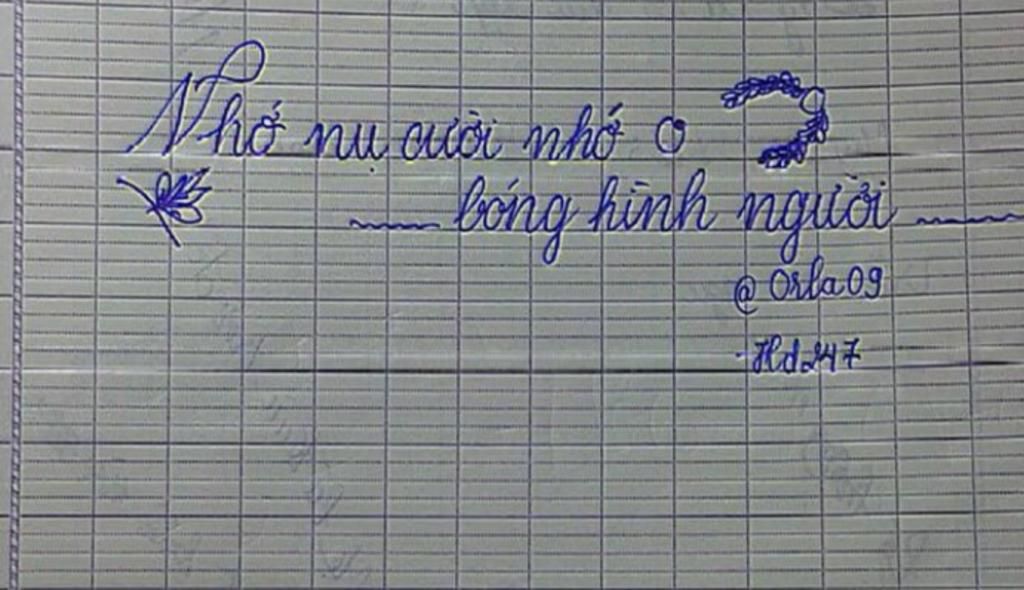 Nhớ nụ cười nhớ
bóng hình người
@Orla09
-Hd247